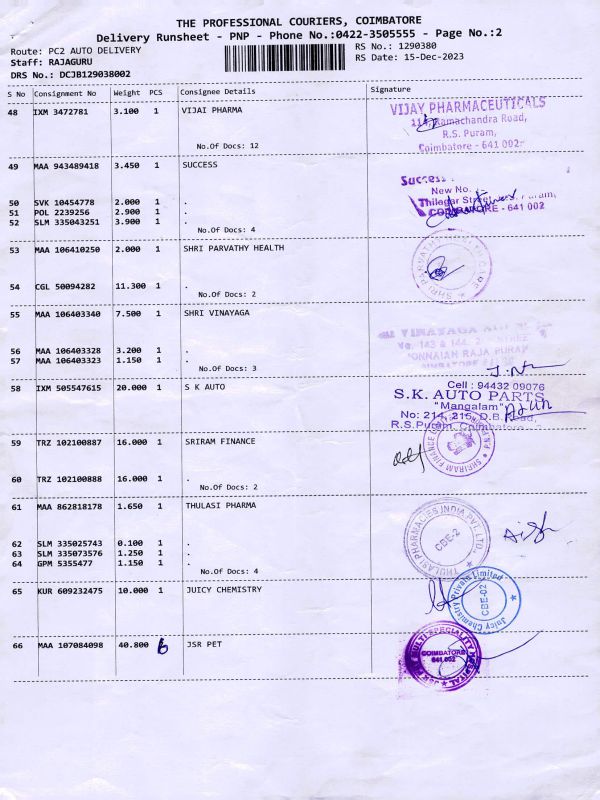 THE PROFESSIONAL COURIERS, COIMBATORE
Delivery Runsheet - PNP - Phone No.:0422-3505555 - Page No.:2
Route: PC2 AUTO DELIVERY RS No.: 1290380
Staff: RAJAGURU RS Date: 15-Dec-2023
DRS No.: DCJB129038002
S No Consignment No Weight PCS Consignee Details Signature
48 IXM 3472781 3.100 1 VIJAI PHARMA
VIJAY PHARMACEUTICALS
Ramachandra Road,
R.S. Puram,
Coimbatore - 641 002
No.Of Docs: 12
49 MAA 943489418 3.450 1 SUCCESS
Success
New No.
50 SVK 10454778 2.000 1 .
51 POL 2239256 2.900 1 .
52 SLM 335043251 3.900 1 .
- 641 002
No.Of Docs: 4
53 MAA 106410250 2.000 1 SHRI PARVATHY HEALTH
54 CGL 50094282 11.300 1 .
No.Of Docs: 2
55 MAA 106403340 7.500 1 SHRI VINAYAGA
VINAYAGA
56 MAA 106403328 3.200 1 .
57 MAA 106403323 1.150 1 .
No.Of Docs: 3
58 IXM 505547615 20.000 1 S K AUTO
Cell : 94432 09076
S.K. AUTO PARTS
"Mangalam"
No: 214, 215, D.B. Road,
R.S.Puram, Coimbatore
59 TRZ 102100887 16.000 1 SRIRAM FINANCE
SHRIRAM FINANCE
60 TRZ 102100888 16.000 1 .
No.Of Docs: 2
61 MAA 862818178 1.650 1 THULASI PHARMA
THULASI PHARMACIES INDIA PVT. LTD.
CBE-2
62 SLM 335025743 0.100 1 .
63 SLM 335073576 1.250 1 .
64 GPM 5355477 1.150 1 .
No.Of Docs: 4
65 KUR 609232475 10.000 1 JUICY CHEMISTRY
Juicy Chemistry Private Limited
CBE-02
66 MAA 107084098 40.800 6 JSR PET
MULTI-SPECIALITY HOSPITAL
COIMBATORE
641 002